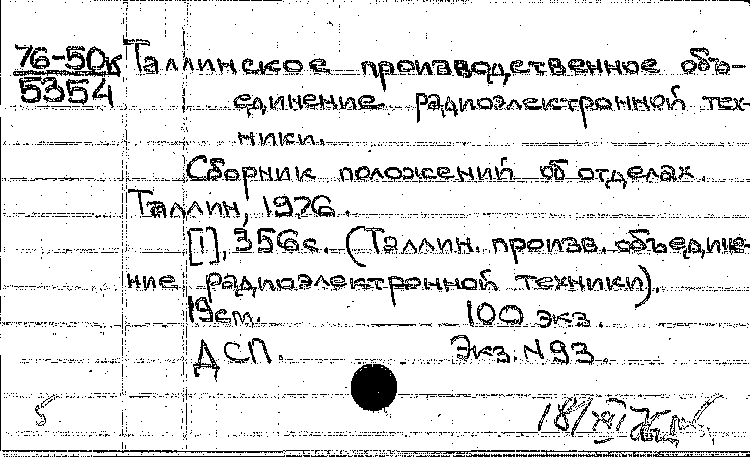 76-50к
5354
Таллинское производственное объ-
единение радиоэлектронной тех-
ники.
Сборник положений об отделах.
Таллин, 1976.
[1], 356 с. (Таллин. произв. объедине-
ние радиоэлектронной техники).
19 cm.   100 экз.
ДСП.   Экз. N 93.
5   18/XII